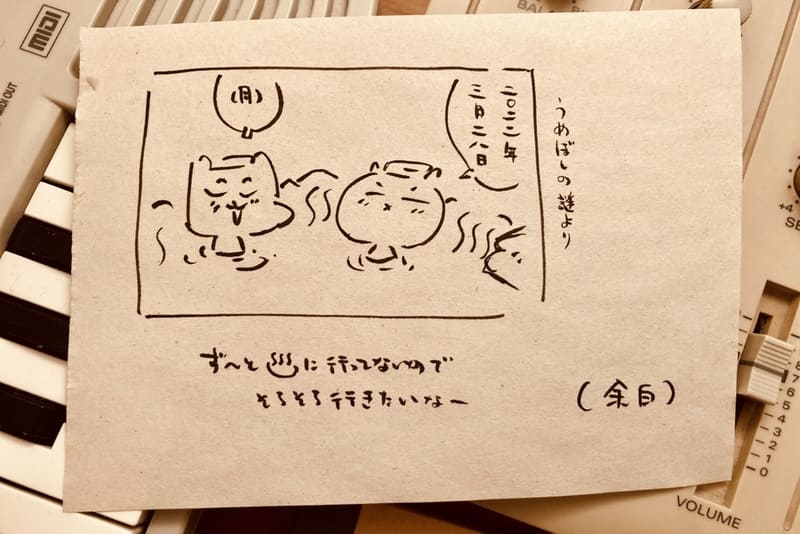 二〇二二年
三月二八日
(月)
うめぼしの謎より
ず〜と♨に行ってないので
そろそろ行きたいなー
(余白)
MIDI
MIDI OUT
BAL
+4
SE
8
7
6
5
4
3
2
1
0
VOLUME